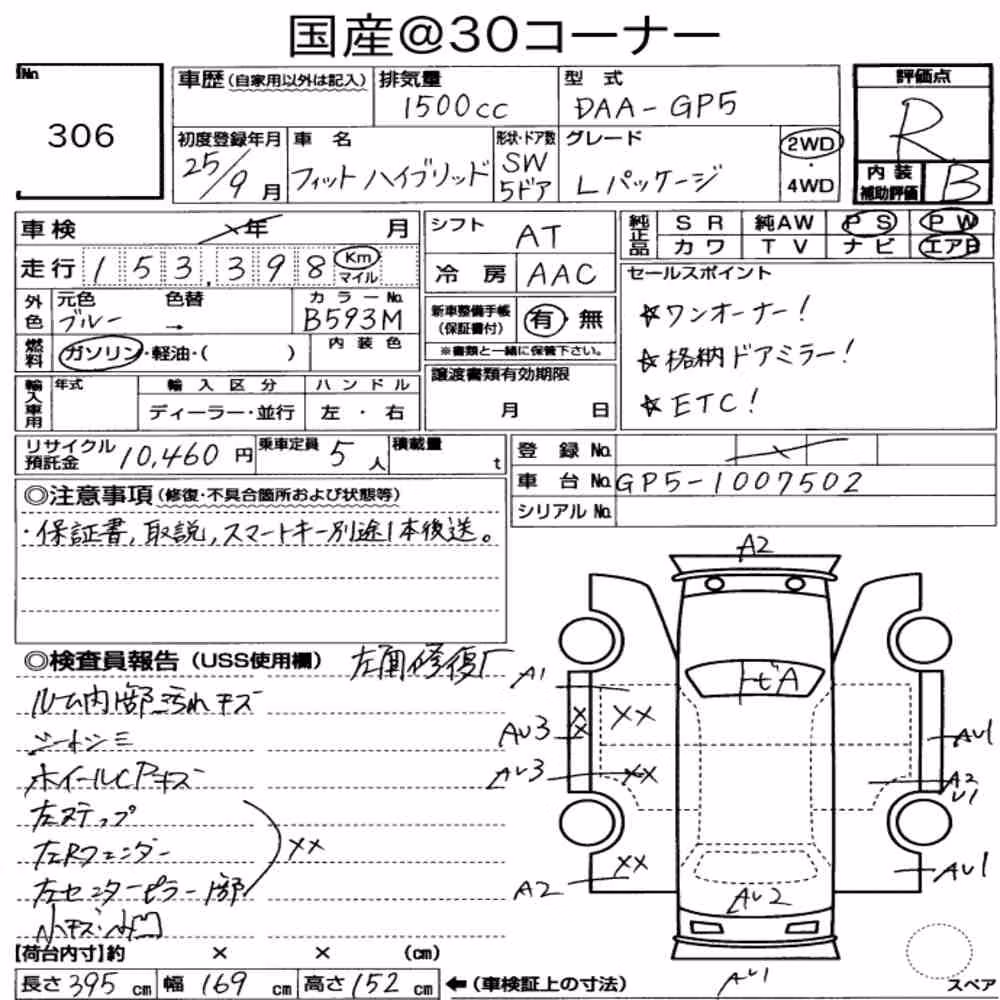 国産@30コーナー
No.
306
車歴(自家用以外は記入)
排気量
1500cc
型 式
DAA-GP5
評価点
R
初度登録年月
25/9月
車 名
フィットハイブリッド
形状・ドア数
SW
5ドア
グレード
Lパッケージ
2WD
・
4WD
内 装
補助評価
B
車検
年 月
走行
153,398
Km
マイル
外色
元色
ブルー
色替
→
カラーNo.
B593M
燃料
ガソリン・軽油・( )
内 装 色
輸入車用
年式
輸 入 区 分
ディーラー・並行
ハ ン ド ル
左 ・ 右
シフト
AT
冷 房
AAC
新車整備手帳
(保証書付)
有・無
※書類と一緒に保管下さい。
譲渡書類有効期限
月 日
純正品
S R
純AW
P S
P W
カ ワ
T V
ナ ビ
エアB
セールスポイント
☆ワンオーナー!
☆格納ドアミラー!
☆ETC!
リサイクル
預託金
10,460円
乗車定員
5人
積載量
t
登 録 No.
車 台 No.
GP5-1007502
シリアル No.
◎注意事項(修復・不具合箇所および状態等)
・保証書,取説,スマートキー別途1本後送。
◎検査員報告(USS使用欄)
左面修復歴
ルーム内部汚れキズ
シートシミ
ホイールCPキズ
左ステップ
左Rフェンダー
左センターピラー部
××
小キズ・小凹
A2
A1
××
××
トビA
AU3
AU3
××
AU1
A2
U1
××
A2
AU2
AU1
AU1
スペア
【荷台内寸】約 × × (cm)
長さ 395 cm 幅 169 cm 高さ 152 cm ←(車検証上の寸法)